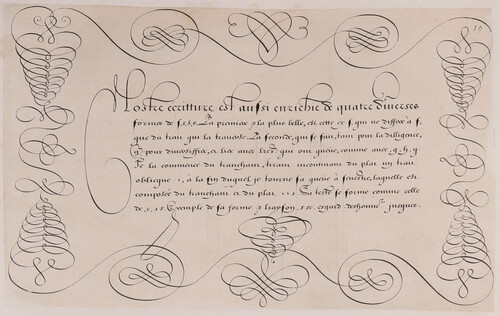 19
Nostre ecriture est aussi enrichie de quatre diverses
formes de s. La premiere & la plus belle, est cette cy s. qui ne differe a f.
que du trait qui la traverse. La seconde, qui se fait, tant pour la dilligence,
que pour diversifier, et lier avec lettres qui ont queue, comme avec g. h. q.
Je la commence du tranchant, tirant montinant du plat un trait
oblique, a la fin duquel je tourne sa queue a senestre, laquelle est
composée du tranchant et du plat. La teste se forme comme celle
de Exemple de sa forme & liayson, esgard deshonne jusques